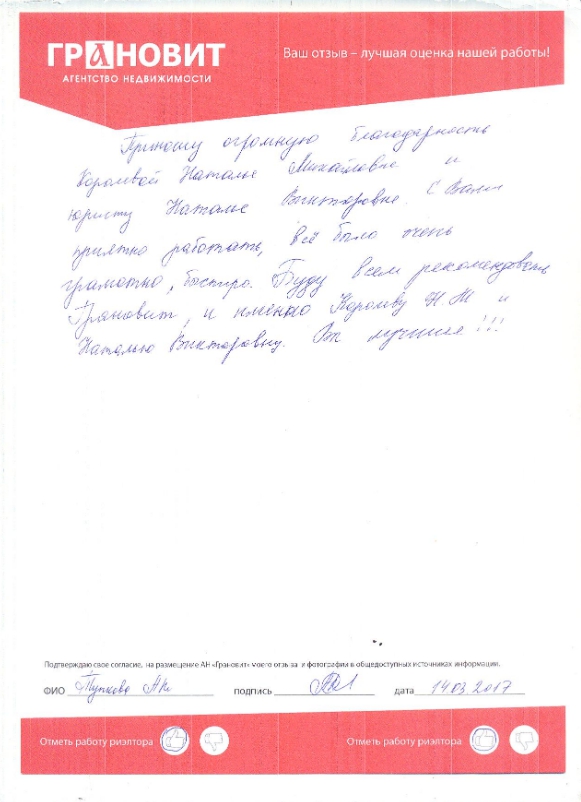 ГРАНОВИТ
АГЕНТСТВО НЕДВИЖИМОСТИ
Ваш отзыв – лучшая оценка нашей работы!
Приношу огромную благодарность
Наталье Михайловне и
юристу Наталье Викторовне. С Вами
приятно работать, всё было очень
грамотно, быстро. Буду всем рекомендовать
Грановит, и именно Н.М и
Наталью Викторовну. Вы лучшие!!!
Подтверждаю свое согласие, на размещение АН «Грановит» моего отзыва и фотографии в общедоступных источниках информации.
ФИО подпись дата 14.03.2017
Отметь работу риэлтора Отметь работу риэлтора